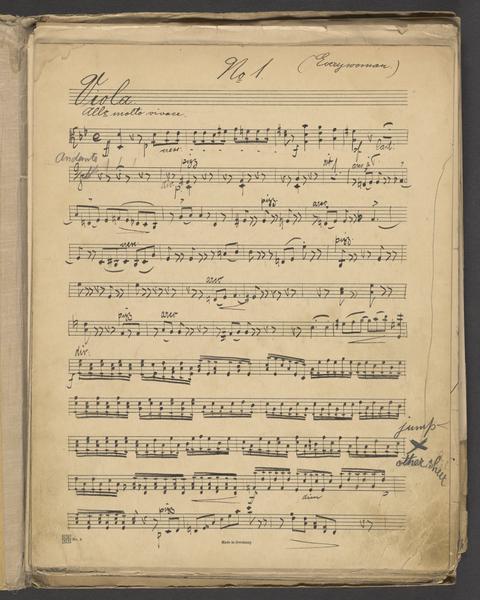 No 1 (Everywoman)
Viola
Allo molto vivace.
ff p cresc. f
Andante
pizz arco
pizz arco
cresc. pizz
arco
pizz arco
div.
f
jump
other sheet
f dim p
pizz
p
No. 2 Made in Germany